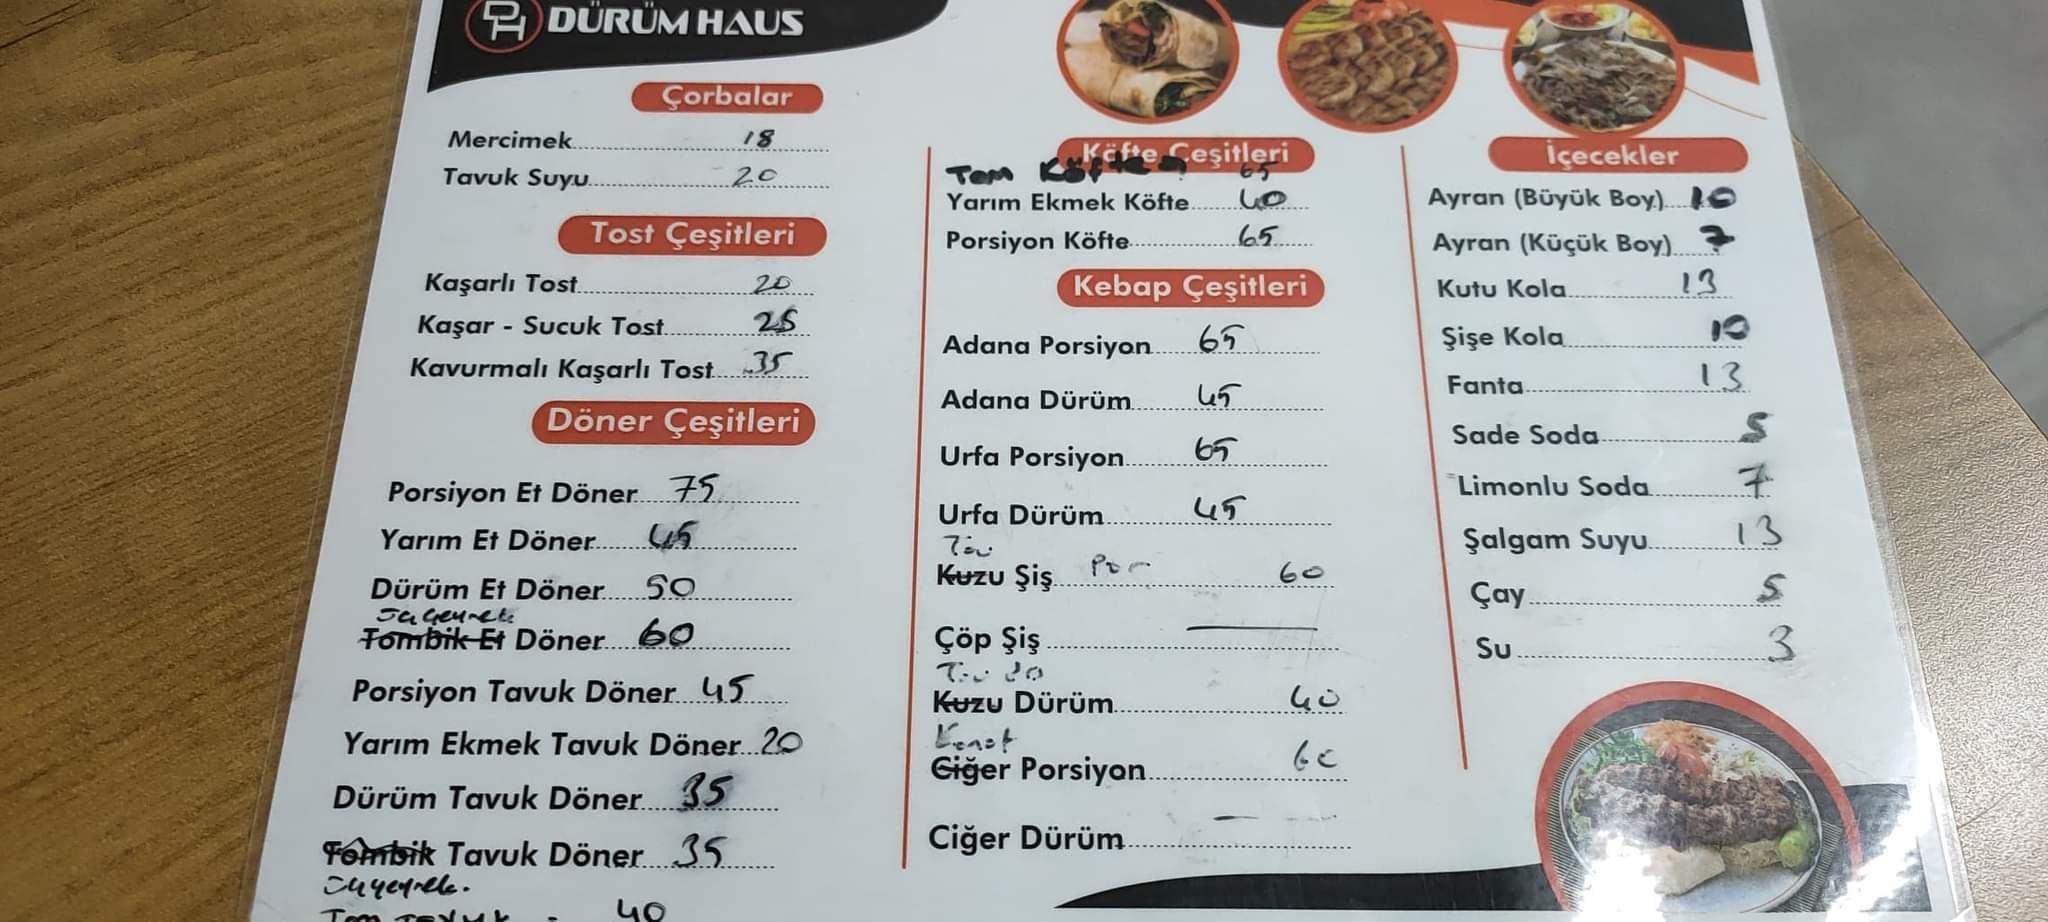 DH DÜRÜM HAUS
Çorbalar
Mercimek 18
Tavuk Suyu 20
Tost Çeşitleri
Kaşarlı Tost 20
Kaşar - Sucuk Tost 25
Kavurmalı Kaşarlı Tost 35
Döner Çeşitleri
Porsiyon Et Döner 75
Yarım Et Döner 45
Dürüm Et Döner 50
Tombik Et Döner 60
Porsiyon Tavuk Döner 45
Yarım Ekmek Tavuk Döner 20
Dürüm Tavuk Döner 35
Tombik Tavuk Döner 35
40
Köfte Çeşitleri
Tam 65
Yarım Ekmek Köfte 40
Porsiyon Köfte 65
Kebap Çeşitleri
Adana Porsiyon 65
Adana Dürüm 45
Urfa Porsiyon 65
Urfa Dürüm 45
Kuzu Şiş Por 60
Çöp Şiş
Kuzu Dürüm 40
Kanat
Ciğer Porsiyon 60
Ciğer Dürüm
İçecekler
Ayran (Büyük Boy) 10
Ayran (Küçük Boy) 7
Kutu Kola 13
Şişe Kola 10
Fanta 13
Sade Soda 5
Limonlu Soda 7
Şalgam Suyu 13
Çay 5
Su 3